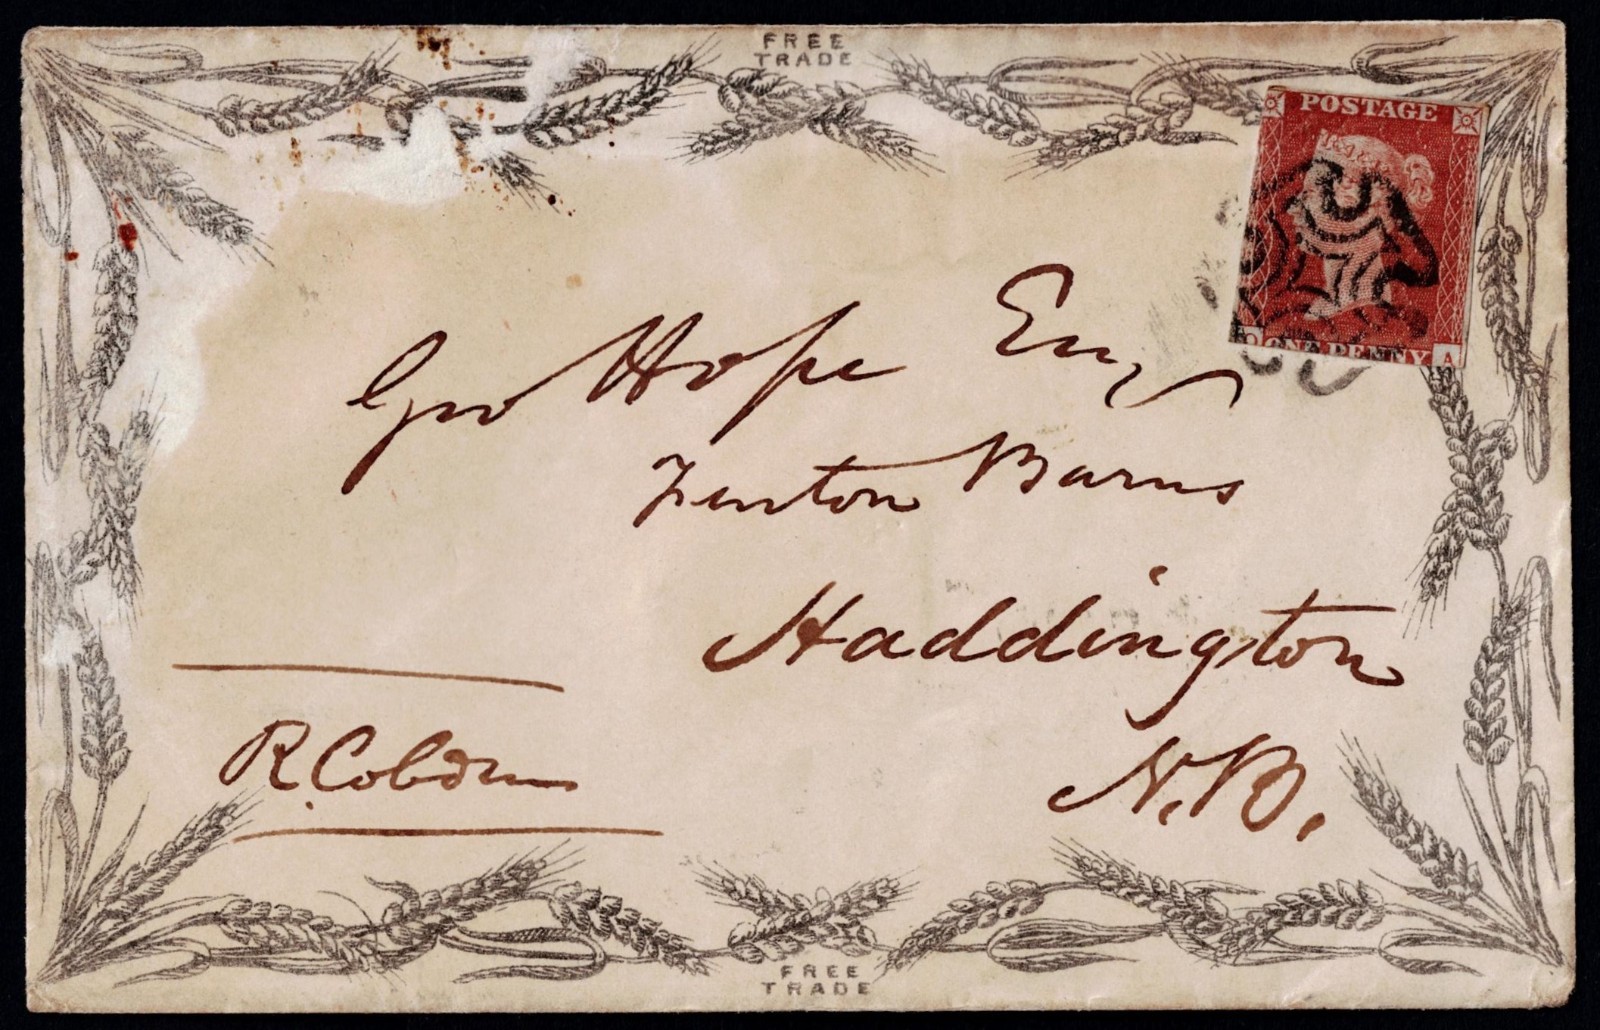 FREE
TRADE
POSTAGE
ONE PENNY
A
Geo Hope Esq
Fenton Barns
Haddington
N.B.
R. Cobden
FREE
TRADE